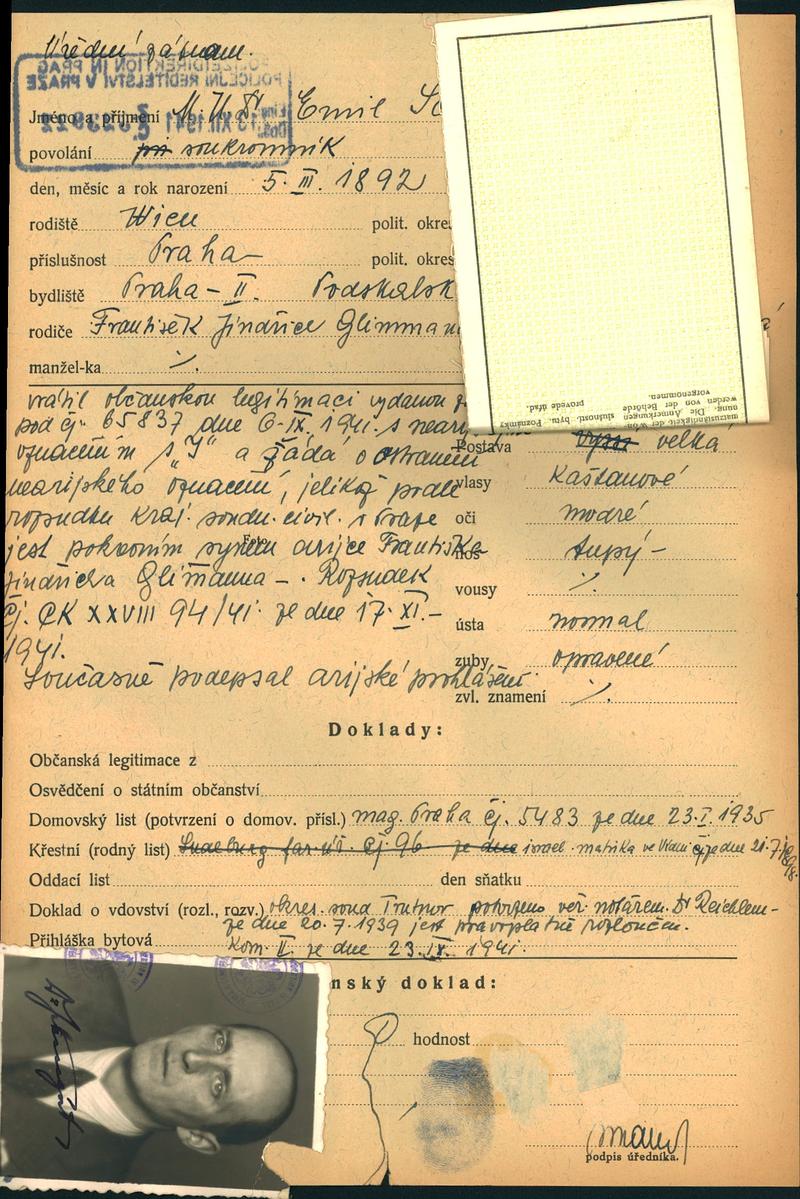 Úřední záznam.
POLIZEIDIREKTION IN PRAG
POLICEJNÍ ŘEDITELSTVÍ V PRAZE
13.XII.1941
Jméno a příjmení M.U.Dr. Emil
povolání soukromník
den, měsíc a rok narození 5. III. 1892
rodiště Wien polit. okre
příslušnost Praha polit. okre
bydliště Praha - II. Podskalsk
rodiče František Jindřich Glimmann
manžel-ka ·/.
vrátil občanskou legitimaci vydanou
pod čj. 65837 dne 6.IX.1941. s neari
označením s „J" a žádá o odstranění
nearijského označení, jelikož podle
rozsudku kraj. soudu civil. v Praze
jest pokrevním synem arijce Františka
Jindřicha Glimanna -. Rozsudek
čj. CK XXVIII 94/41. ze dne 17. XI. -
1941.
Současně podepsal arijské prohlášení
Postava velká
vlasy kaštanové
oči modré
nos tupý -
vousy ·/.
ústa normal
zuby opravené
zvl. znamení ·/.
Foto
vorgenommen.
werden von der Behörde provede úřad.
anmg. Die Anmerkungen slušnosti bytu. Poznámky
Doklady:
Občanská legitimace z
Osvědčení o státním občanství
Domovský list (potvrzení o domov. přísl.) mag. Praha čj. 5483 ze dne 23.I.1935
Křestní (rodný list) čj. 96 ze dne israel. matrika ve Vídni čj. ze dne 21.7.
Oddací list den sňatku
Doklad o vdovství (rozl., rozv.) okres. soud Trutnov potvrzeno veř. notářem Dr Reichlem -
ze dne 20.7.1939 jest pravoplatně rozloučen.
Přihláška bytová kom. II. ze dne 23.IX.1941.
nský doklad:
hodnost
podpis úředníka.